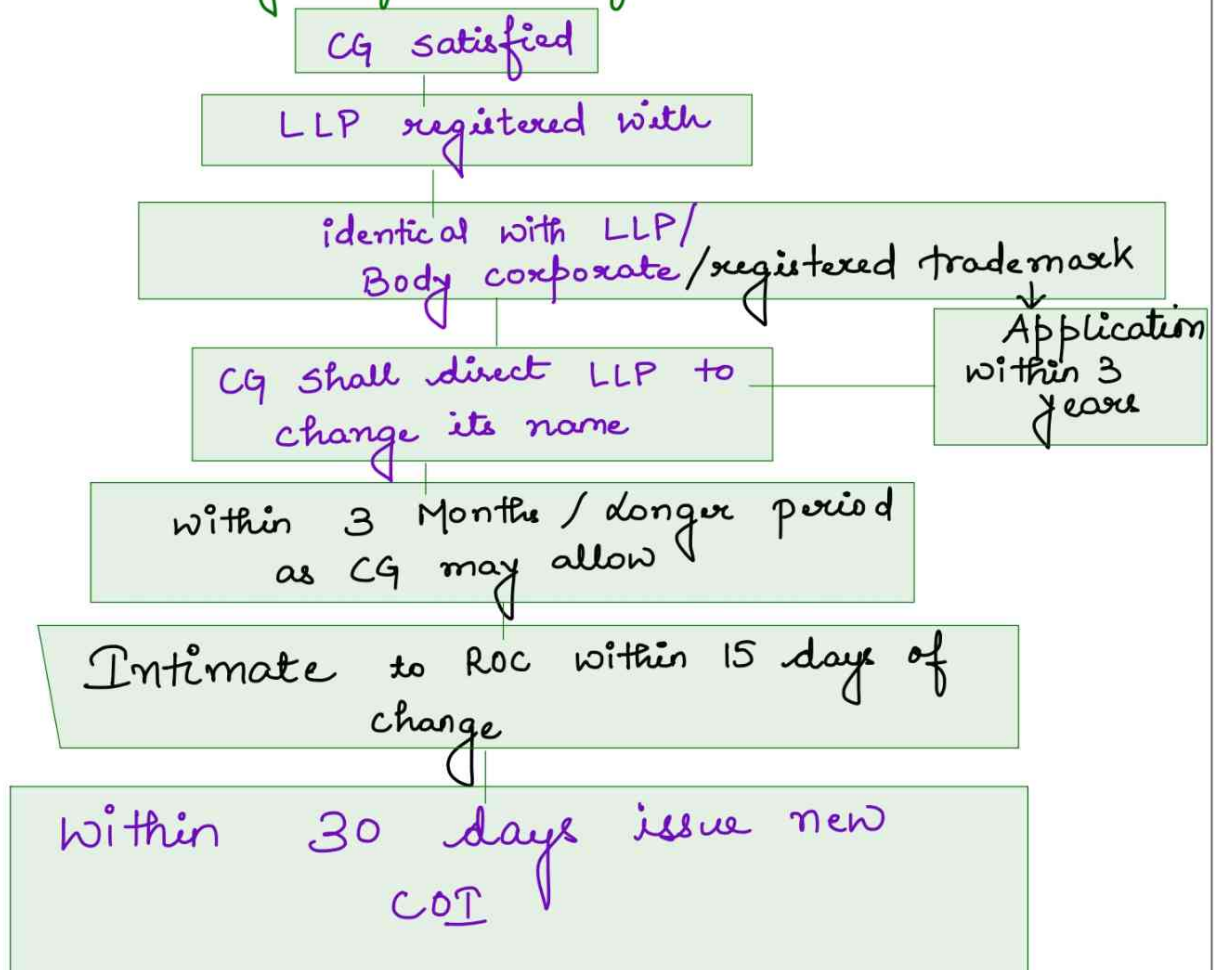 CG satisfied
LLP registered with
identical with LLP/
Body corporate/registered trademark
Application
within 3
years
CG shall direct LLP to
change its name
within 3 Months / Longer period
as CG may allow
Intimate to ROC within 15 days of
change
within 30 days issue new
COI